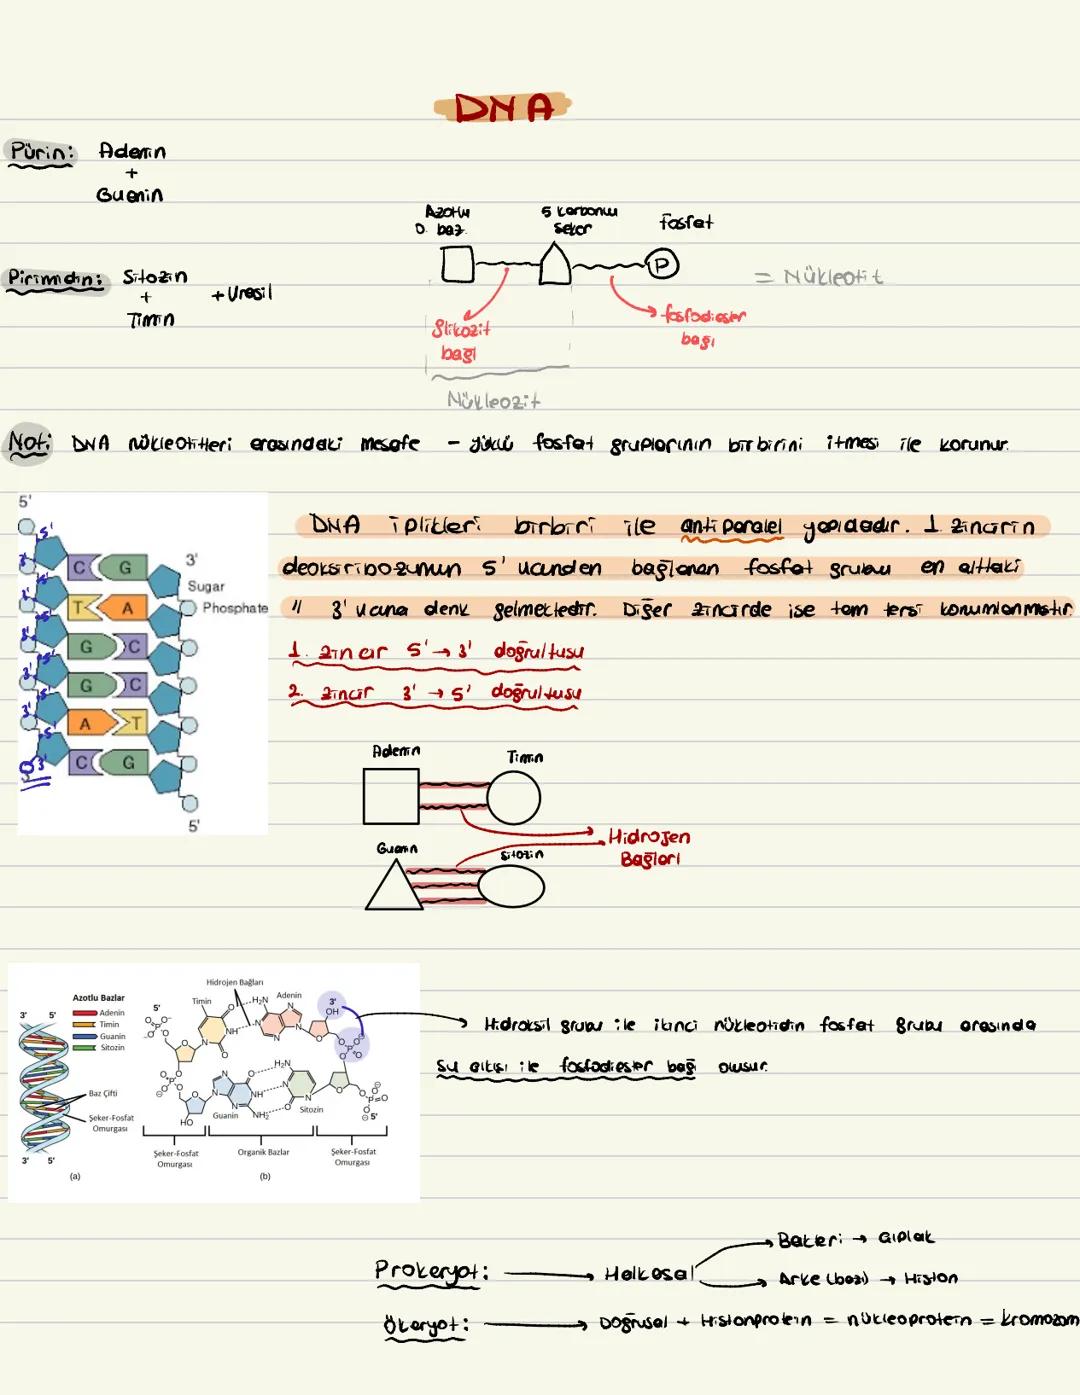 DNA
Pürin: Adenin
+
Guanin
Azotlu
O. baz
5 karbonlu
şeker
fosfat
P
= Nükleotit
Pirimidin: Sitozin
+
Timin
+ Urasil
Glikozit
bağı
fosfodiester
bağı
Nükleozit
Not: DNA nükleotitleri arasındaki mesafe - yüklü fosfat gruplarının birbirini itmesi ile korunur.
5'
3'
Sugar
Phosphate
C G
T A
G C
G C
A T
C G
5'
DNA iplikleri birbiri ile anti paralel yapıdadır. 1. zincirin
deoksiribozunun 5' ucundan bağlanan fosfat grubu en alttaki
" 3' ucuna denk gelmektedir. Diğer zincirde ise tam tersi konumlanmıştır
1. zincir 5' → 3' doğrultusu
2. zincir 3' → 5' doğrultusu
Adenin
Timin
Guanin
Sitozin
Hidrojen
Bağları
Azotlu Bazlar
Adenin
Timin
Guanin
Sitozin
3' 5'
Baz Çifti
Şeker-Fosfat
Omurgası
3' 5'
(a)
Hidrojen Bağları
5'
Timin
Adenin
3'
OH
H₂N
NH
H₂N
NH
NH₂
HO
Guanin
Sitozin
5'
Şeker-Fosfat
Omurgası
Organik Bazlar
Şeker-Fosfat
Omurgası
(b)
Hidroksil grubu ile ikinci nükleotidin fosfat grubu arasında
su çıkışı ile fosfodiester bağ oluşur.
Prokaryot: → Halkasal
Bakteri → Çıplak
Arke (bazı) → Histon
Ökaryot: → Doğrusal + Histonprotein = nükleoprotein = kromozom